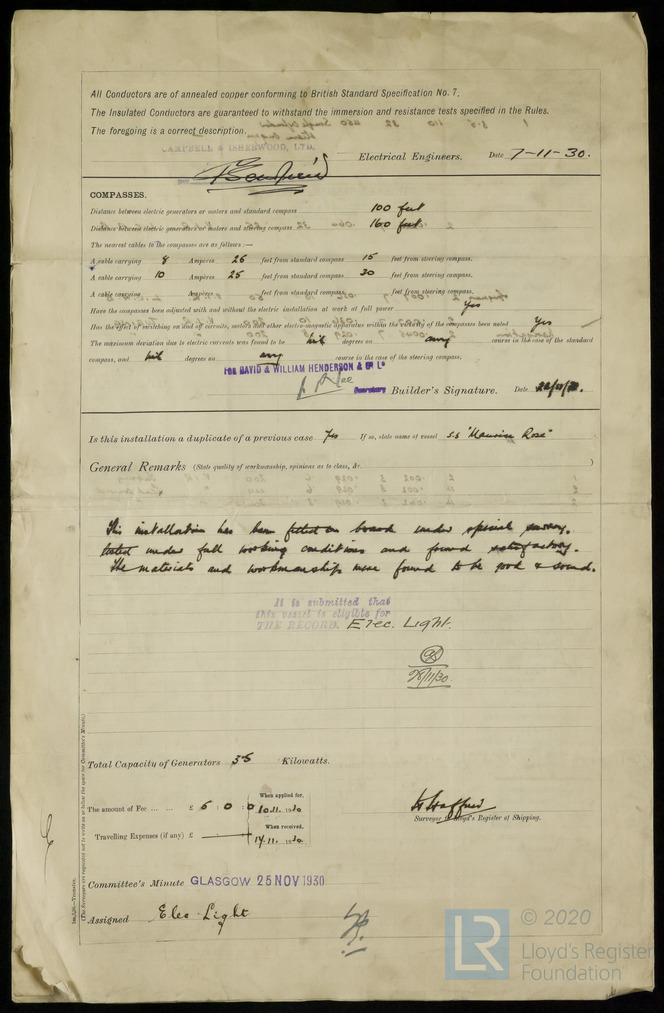 All Conductors are of annealed copper conforming to British Standard Specification No. 7.
The Insulated Conductors are guaranteed to withstand the immersion and resistance tests specified in the Rules.
The foregoing is a correct description.
CAMPBELL & ISHERWOOD, LTD.
Electrical Engineers. Date 7-11-30.
COMPASSES.
Distance between electric generators or motors and standard compass 100 feet
Distance between electric generators or motors and steering compass 160 feet
The nearest cables to the compasses are as follows:—
A cable carrying 8 Ampères 26 feet from standard compass 15 feet from steering compass.
A cable carrying 10 Ampères 25 feet from standard compass 30 feet from steering compass.
A cable carrying Ampères feet from standard compass feet from steering compass.
Have the compasses been adjusted with and without the electric installation at work at full power Yes
Has the effect of switching on and off circuits, motors and other electro-magnetic apparatus within the vicinity of the compasses been noted Yes
The maximum deviation due to electric currents was found to be nil degrees on any course in the case of the standard
compass, and nil degrees on any course in the case of the steering compass.
FOR DAVID & WILLIAM HENDERSON & Co Ld
Secretary Builder's Signature. Date
Is this installation a duplicate of a previous case Yes If so, state name of vessel S.S "Maurice Rose"
General Remarks (State quality of workmanship, opinions as to class, &c. )
This installation has been fitted on board under special survey,
tested under full working conditions and found satisfactory.
The materials and workmanship were found to be good & sound.
It is submitted that
this vessel is eligible for
THE RECORD. Elec. Light.
28/11/30.
Total Capacity of Generators 35 Kilowatts.
The amount of Fee ... ... £ 6 : 0 : 0
When applied for,
10.11.1930
Travelling Expenses (if any) £
When received,
14.11.1930
Surveyor to Lloyd's Register of Shipping.
Committee's Minute GLASGOW 25 NOV 1930
Assigned Elec Light
(The Surveyors are requested not to write on or below the space for Committee's Minute.)
© 2020
LR
Lloyd's Register
Foundation